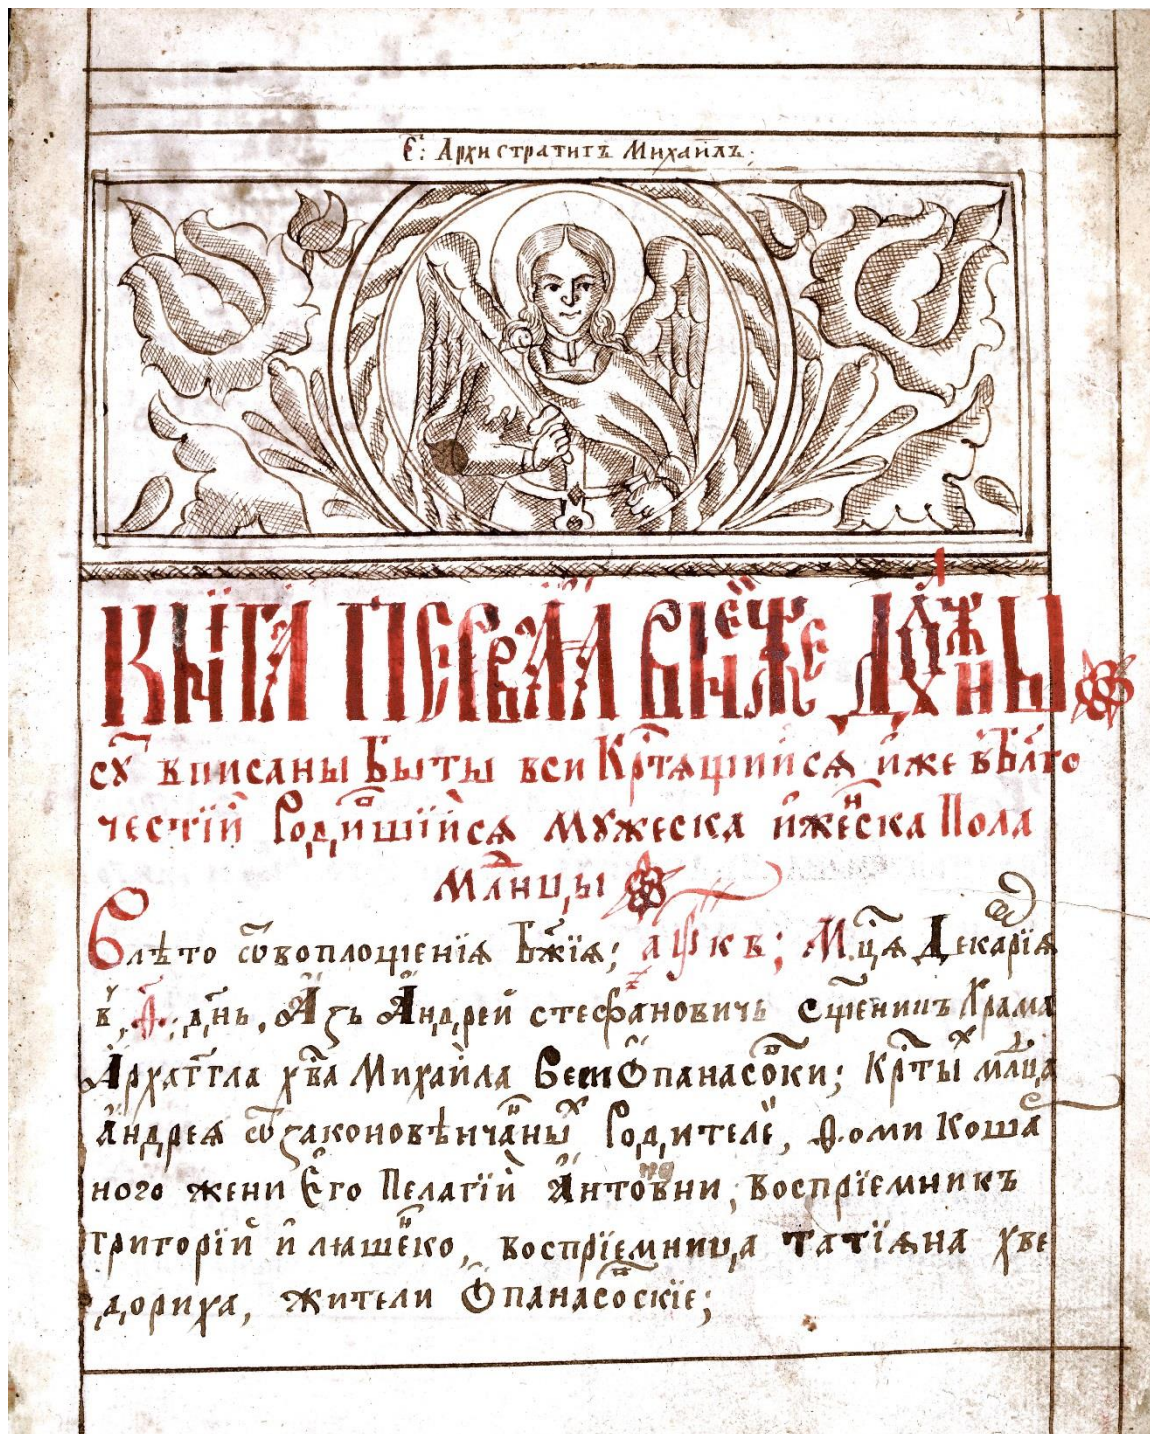 С: Архистратигъ Михаилъ:
КНИГА ПЕРВАЯ ВНЕЙЖЕ ДОЛЖНЫ
сꙋть вписаны Быти вси Крⷭ҇тящіийся и҆же въ Бл҃го
честїй Родившїйся мꙋжеска и҆ же́нска Пола
Младенцы
Влѣто ѿ воплощенїя Бж҃їя; ҂аѱкв; Мц҃я Декаврїя
в, д҃; днь, Азъ Андрей стефановичь сщ҃енникъ Храма
Архаг҃гла хв҃а Михаила Веси Ѻпанасовки; Крⷭ҇тыхъ млⷣнца
Андрея ѿ законовѣнчанныхъ Родителей, Ѳоми Коша
ного жени Єго Пелагїй Антоновни; воспрїемникъ
григорїй илюшенко, воспрїемница татїяна хве
дориха, жители Ѻпанасовскїе;